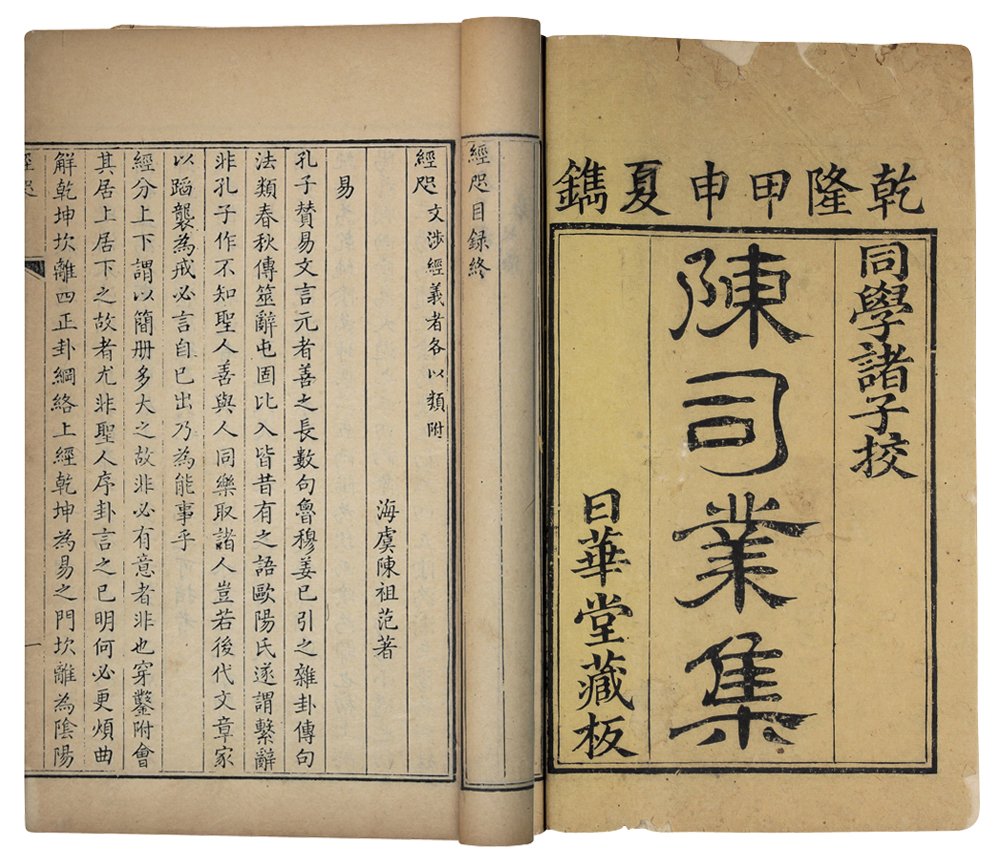 乾隆甲申夏鐫
同學諸子校
陳司業集
日華堂藏板
經咫目録終
經咫 文涉經義者各以類附
海虞陳祖范著
易
孔子贊易文言元者善之長數句魯穆姜已引之雜卦傳句
法類春秋傳筮辭屯固比入皆昔有之語歐陽氏遂謂繫辭
非孔子作不知聖人善與人同樂取諸人豈若後代文章家
以蹈襲為戒必言自已出乃為能事乎
經分上下謂以簡册多大之故非必有意者非也穿鑿附會
其居上居下之故者尤非聖人序卦言之已明何必更煩曲
觧乾坤坎離四正卦綱絡上經乾坤為易之門坎離為陰陽
經咫
一